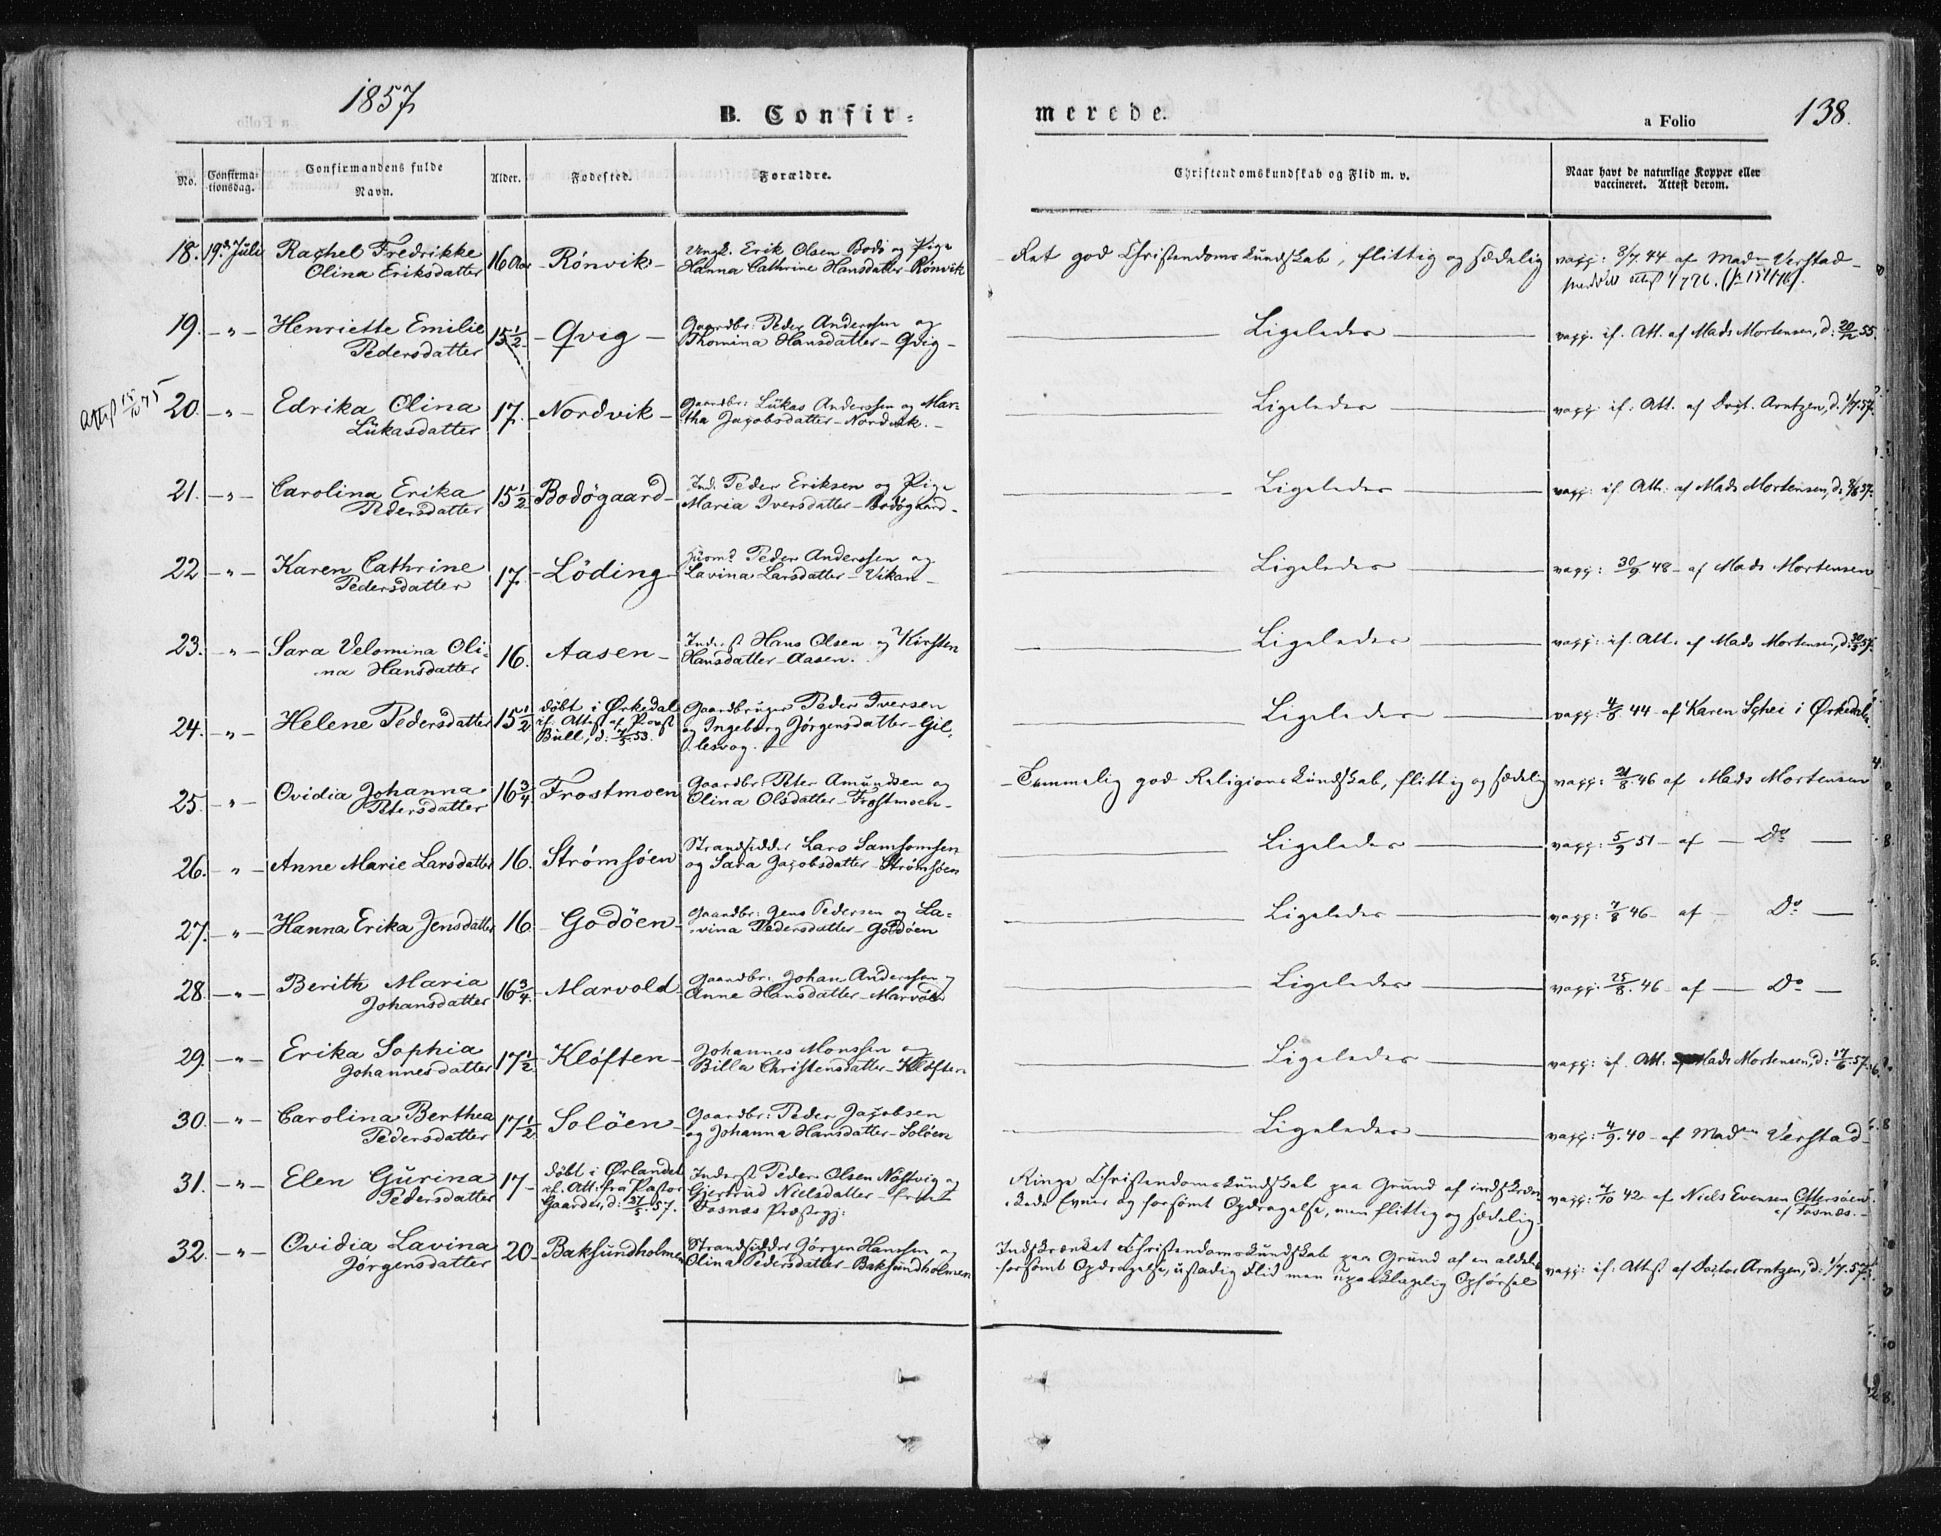 1857
B. Confir=
merede.
a Folio
138.
No.
Confirma-
tionsdag.
Confirmandens fulde
Navn.
Alder.
Fødested.
Forældre.
Christendomskundskab og Flid m. v.
Naar havt de naturlige Kopper eller
vaccineret. Attest derom.
18. 19de Juli Rachel Fredrikke 16 Aar - Rönvik - Ungk. Erik Olsen Bodö og Pige
Olina Eriksdatter Hanna Cathrine Hansdatter Rönvik
Ret god Christendomskundskab, flittig og sædelig
vacc: 3/7.44 af Madm Verstad
19. - " - Henriette Emilie 15 1/2 - Qvig - Gaardbr: Peder Anderssen og
Pedersdatter Thomina Hansdatter - Qvig -
Ligeledes
vacc. if. Att. af Mads Mortensen, d: 20/12 55.
Attest 15/10 75
20. - " - Edrika Olina 17. - Nordvik - Gaardbr: Lukas Anderssen og Mar=
Lukasdatter tha Jacobsdatter - Nordvik. -
Ligeledes
vacc. if: Att. af Doct. Arntzen, d. 1/7.57.
21. - " - Carolina Erika 15 1/2 Bodögaard - Ind. Peder Eriksen og Pige
Pedersdatter Maria Iversdatter - Bodögaard -
Ligeledes
vacc: if. Att. af Mads Mortensen, d: 8/6 57.
22 - " - Karen Cathrine 17. - Löding - Huusmd Peder Anderssen og
Pedersdatter Lavina Larsdatter - Vikan -
Ligeledes
vacc: 30/9 48 - af Mads Mortensen
23. - " - Sara Velomina Oli= 16. Aasen - Inderst Hans Olsen og Kirsten
na Hansdatter Hansdatter Aasen.
Ligeledes
vacc: if. Att. af Mads Mortensen, d: 30/5 57.
24. - " - Helene Pedersdatter 15 1/2 döbt i Ørkedal Gaardbruger Peder Iversen
if. Attest af Provst og Ingeborg Jörgensdatter - Gil=
Bull, d: 7/5 53. lesvog. -
Ligeledes
vacc: 4/8 44 - af Karen Schei i Ørkedalen
25. - " - Ovidia Johanna 16 3/4 Frostmoen Gaardbr. Peter Amundsen og
Petersdatter Olina Olsdatter - Frostmoen -
- Temmelig god Religionskundskab, flittig og sædelig
vacc: 21/8.46 af Mads Mortensen
26. - " - Anne Marie Larsdatter 16. Strømsöen Strandsidder Lars Samsomsen
og Sara Jacobsdatter - Strömsöen
Ligeledes
vacc: 5/9 51 - af - Do -
27. - " - Hanna Erika Jensdatter 16. Godöen - Gaardbr: Jens Pedersen og La=
vina Pedersdatter - Godöen
Ligeledes
vacc: 7/8 46 - af - Do -
28. - " - Berith Maria 16 3/4. - Marvold Gaardbr: Johan Anderssen og
Johansdatter Anne Hansdatter - Marvold
Ligeledes
vacc: 25/8.46 - af - Do -
29. - " - Erika Sophia 17 1/2 - Klöften - Johannes Monssen og
Johannesdatter Billa Christensdatter - Klöften
Ligeledes
vacc: if. Att. af Mads Mortensen, d: 17/6.57.
30. - " - Carolina Berthea 17 1/2 Solöen - Gaardbr: Peder Jacobsen
Pedersdatter og Johanna Hansdatter - Solöen
Ligeledes
vacc: 4/9.40 - af Madm Verstad -
31. - " - Elen Gurina 17 - döbt i Ørlandet Inderst Peder Olsen Nöstvig og
Pedersdatter if. Att. fra Pastor Gjertrud Nielsdatter -
Gaarder, d: 27/5.57. Fosnæs Præstegj:
Ringe Christendomskundskab paa Grund af indskræn=
kede Evner og forsömt Opdragelse, men flittig og sædelig.
vacc: 7/10 42 - af Niels Evensen Ottersöen
af Fosnæs. -
32. - " - Ovidia Lavina 20 - Baksundholmen Strandsidder Jörgen Hanssen og
Jörgensdatter Olina Pedersdatter - Baksundholmen
Indskrænket Christendomskundskab paa Grund af en aldeles
forsömt Opdragelse, ustadig Flid men upaaklagelig Opförsel
vacc: if: Attest af Doctor Arntzen, d: 1/7.57.